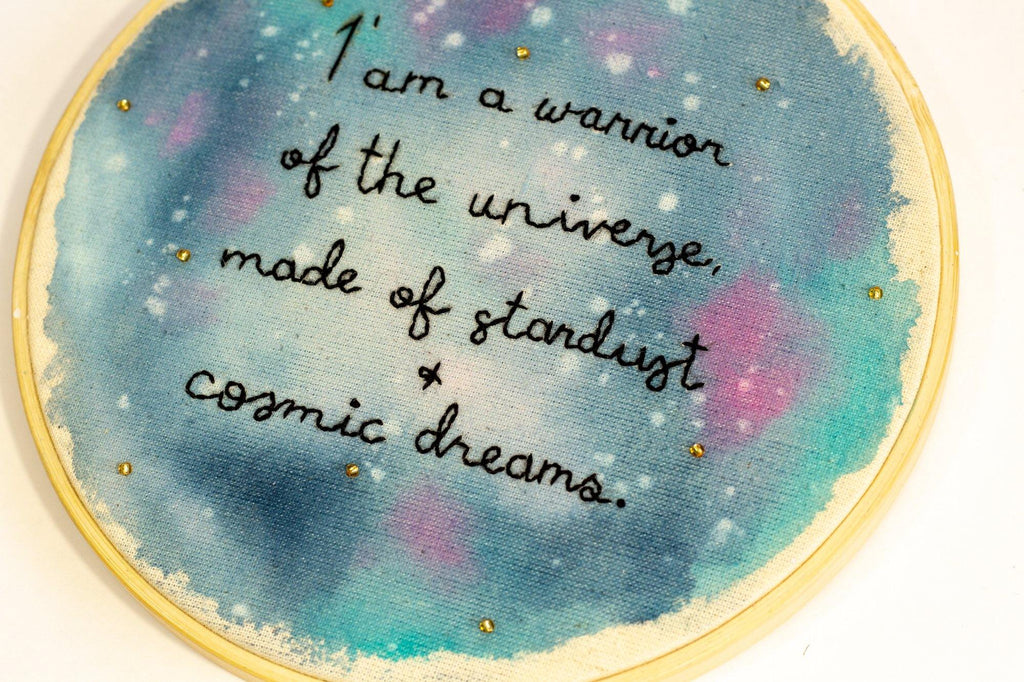 I' am a warrior
of the universe,
made of stardust
*
cosmic dreams.